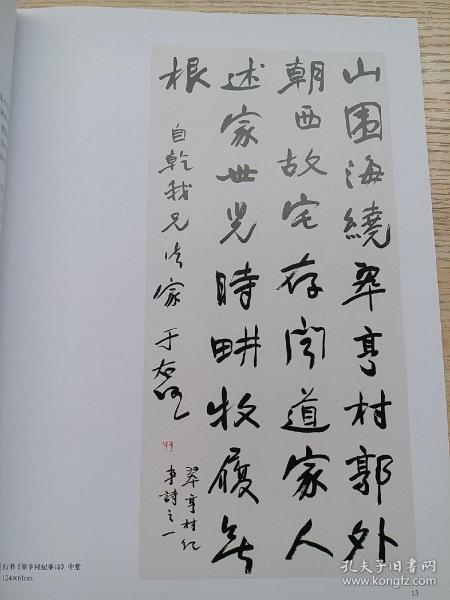 山围海繞翠亨村郭外
朝西故宅存闻道家人
述家世兒時畊牧履無
根
自乾我兄法家 于右任
翠亨村纪
事詩之一
行书《翠亨村纪事诗》中堂
124×61cm
13
孔夫子旧书网